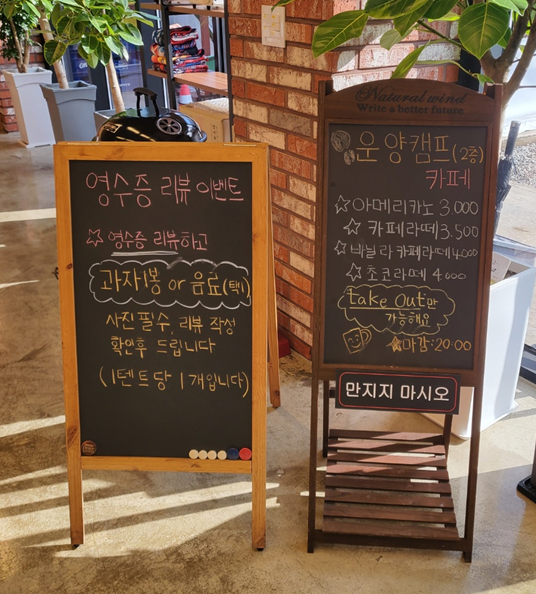 영수증 리뷰 이벤트
☆ 영수증 리뷰하고
과자1봉 or 음료(택1)
사진 필수, 리뷰 작성
확인후 드립니다
(1텐트당 1개입니다)
Natural wind
Write a better future
운양캠프(2층)
카페
☆아메리카노 3.000
☆ 카페라떼 3.500
☆바닐라 카페라떼 4.000
☆ 초코라떼 4.000
take out만
가능해요
☆마감:20:00
만지지 마시오